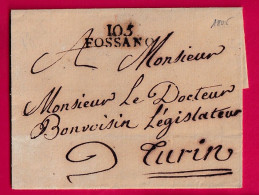 1806
105
FOSSANO
A Monsieur
Monsieur Le Docteur
Bonvoisin Législateur
Turin